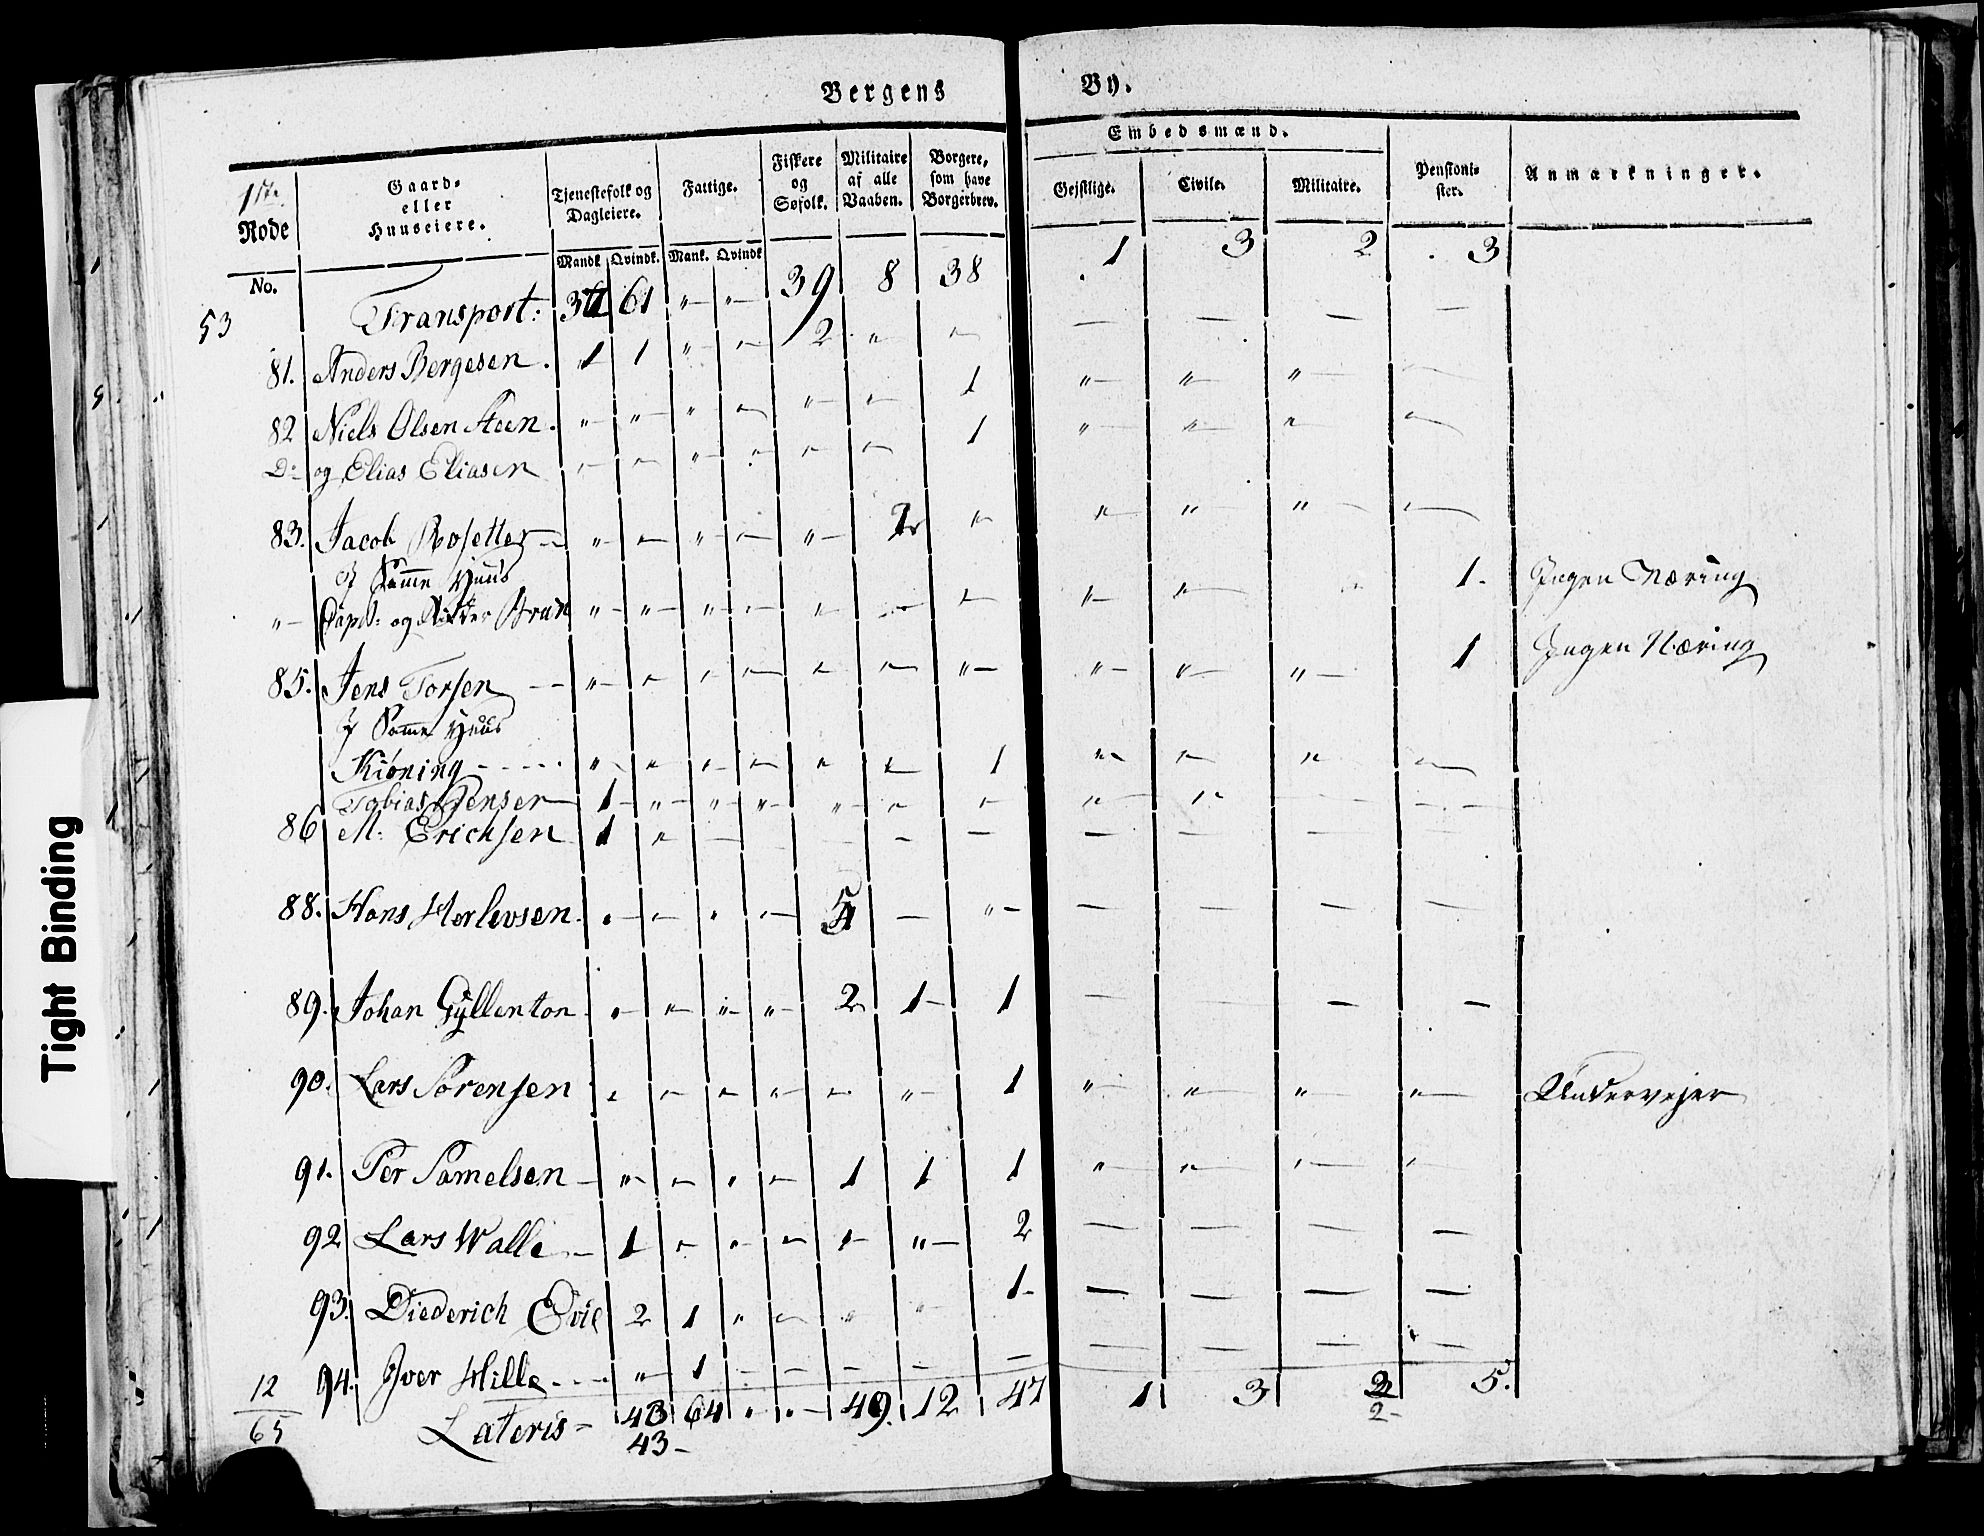 Bergens By.
1ste Rode
No.
Gaard- eller Huuseiere.
Tjenestefolk og Dagleiere.
Mandk Qvindk.
Fattige.
Mank. Qvindk
Fiskere og Søfolk.
Militaire af alle Vaaben.
Borgere, som have Borgerbrev.
Embedsmænd.
Gejstlige. Civile. Militaire.
Pensioni- ster.
Anmærkninger.
53 Transport: 61 " " 39 8 38 1 3 2 3
81. Anders Bergesen. 1 1 " " 2 " " — — — —
82 Niels Olsen Steen. " " " " " " 1 " " " "
Do og Elias Eliasen " " " " " " 1 " " " "
83. Jacob Rosetter " " " " " 2 " " " " "
I Samme Huus
"— Capt: og Ridder " " " " " " " " " 1. Ingen Næring
85. Jens Torsen " " " " " " " " " " 1 Ingen Næring
I Samme Huus
Kiøning " " " " " " 1 " " " "
Tobias Jensen 1 " " " " " " " " — —
86 M. Erichsen 1 " — — — — — — — —
88. Hans Herlevsen " " " " 5 — " — — — —
89. Johan Gyllenton " " " " 2 1 1 — — — —
90. Lars Sørensen " " " " " " 1 " " " " Undervejer
91. Per Samelsen " " " " 1 1 1 " " " "
92 Lars Walle 1 " " " " " 2 — — — —
93. Diederich Evil 2 1 " " " " 1 — — — —
94. Iver Hille " 1 — — — — — — — — —
12
65
Lateris 43 64 " " 49. 12 47 1 3 2 5.
43 2
Tight Binding